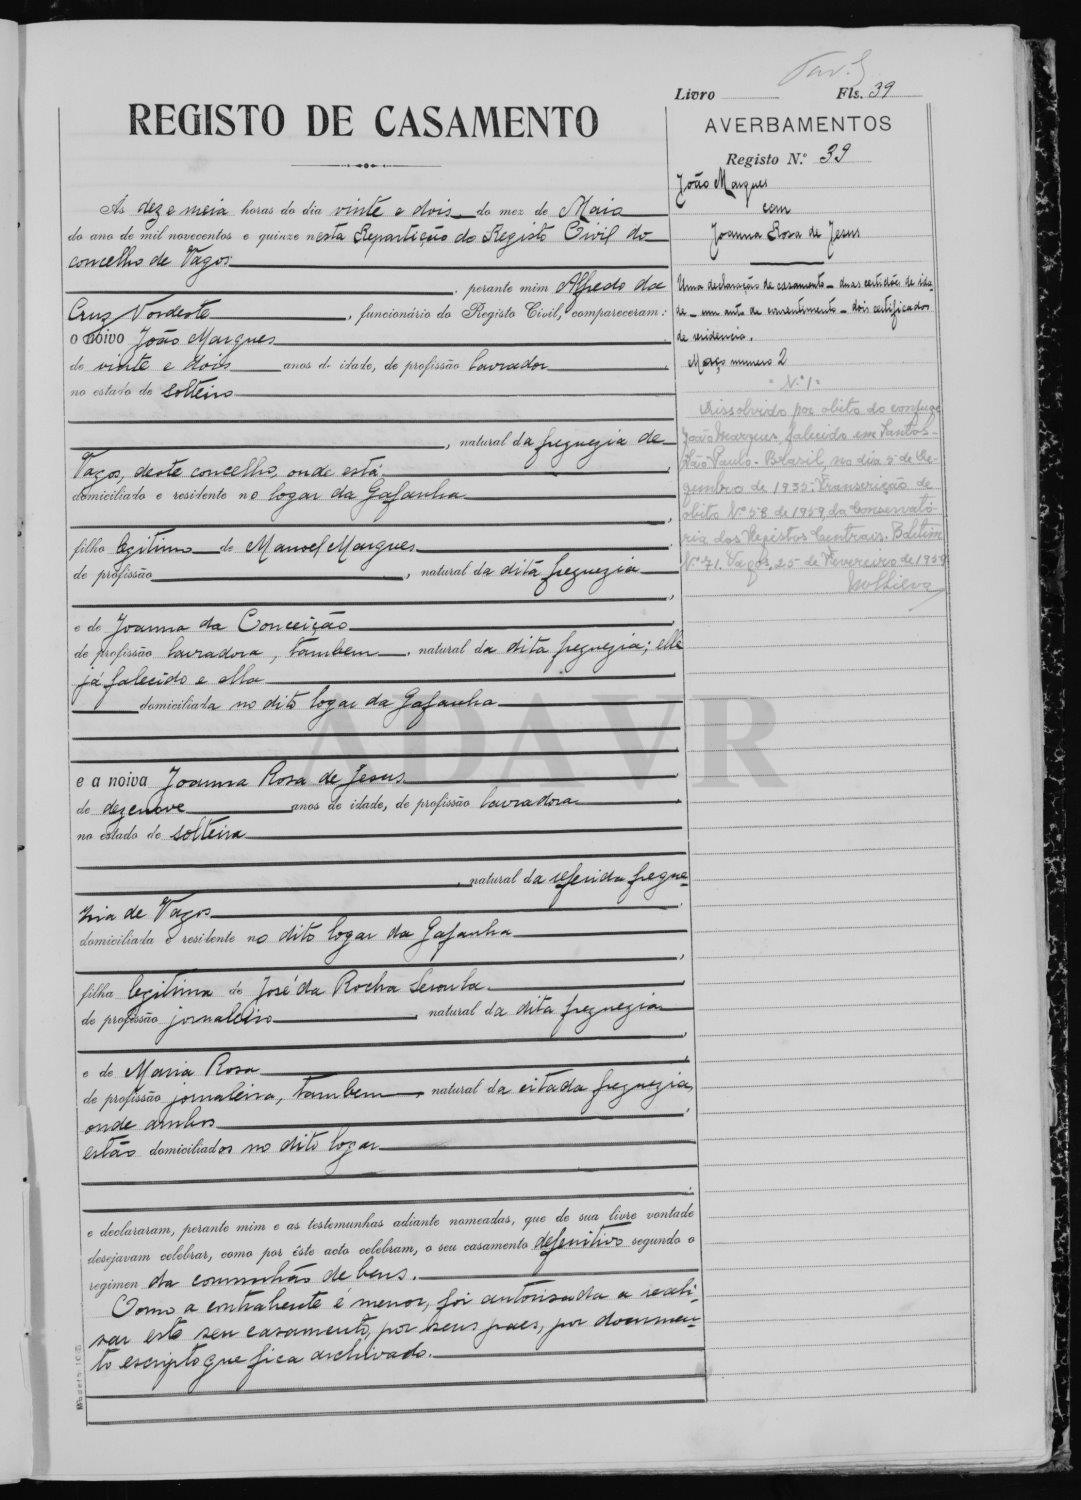 Livro Fls. 39
REGISTO DE CASAMENTO
AVERBAMENTOS
Registo N.º 39
João Marques
com
Joanna Rosa de Jesus
Uma declaração de casamento - duas certidões de ida-
de - um auto de consentimento - dois certificados
de residencia.
Março numero 2
Nº 1
Dissolvido por obito do conjuge
João Marques, falecido em Santos-
São Paulo-Brasil, no dia 5 de De-
zembro de 1935. Transcrição de
obito Nº 58 de 1959, da Conservató-
ria dos Registos Centrais. Boletim
Nº 71. Vagos, 25 de Fevereiro de 1959
Às dez e meia horas do dia vinte e dois do mez de Maio
do ano de mil novecentos e quinze nesta Repartição do Registo Civil do
concelho de Vagos
, perante mim Alfredo da
Cruz Nordeste, funcionário do Registo Civil, compareceram:
o noivo João Marques
de vinte e dois anos de idade, de profissão lavrador,
no estado de solteiro
, natural da freguezia de
Vagos, deste concelho, onde está,
domiciliado e residente no logar da Gafanha
,
filho legitimo de Manoel Marques
de profissão , natural da dita freguezia
,
e de Joanna da Conceição,
de profissão lavradora, tambem, natural da dita freguezia; elle
já falecido e ella
domiciliada no dito logar da Gafanha
e a noiva Joanna Rosa de Jesus,
de dezenove anos de idade, de profissão lavradora,
no estado de solteira
, natural da referida fregue-
zia de Vagos,
domiciliada e residente no dito logar da Gafanha
,
filha legitima de José da Rocha Seroula
de profissão jornaleiro, natural da dita freguezia
,
e de Maria Rosa
de profissão jornaleira, tambem, natural da citada freguezia,
onde ambos,
estão domiciliados no dito logar
e declararam, perante mim e as testemunhas adiante nomeadas, que de sua livre vontade
desejavam celebrar, como por êste acto celebram, o seu casamento defenitivo segundo o
regimen da comunhão de bens.
Como a contrahente é menor, foi autorisada a reali-
sar este seu casamento, por seus paes, por documen-
to escripto que fica archivado.
ADAVR